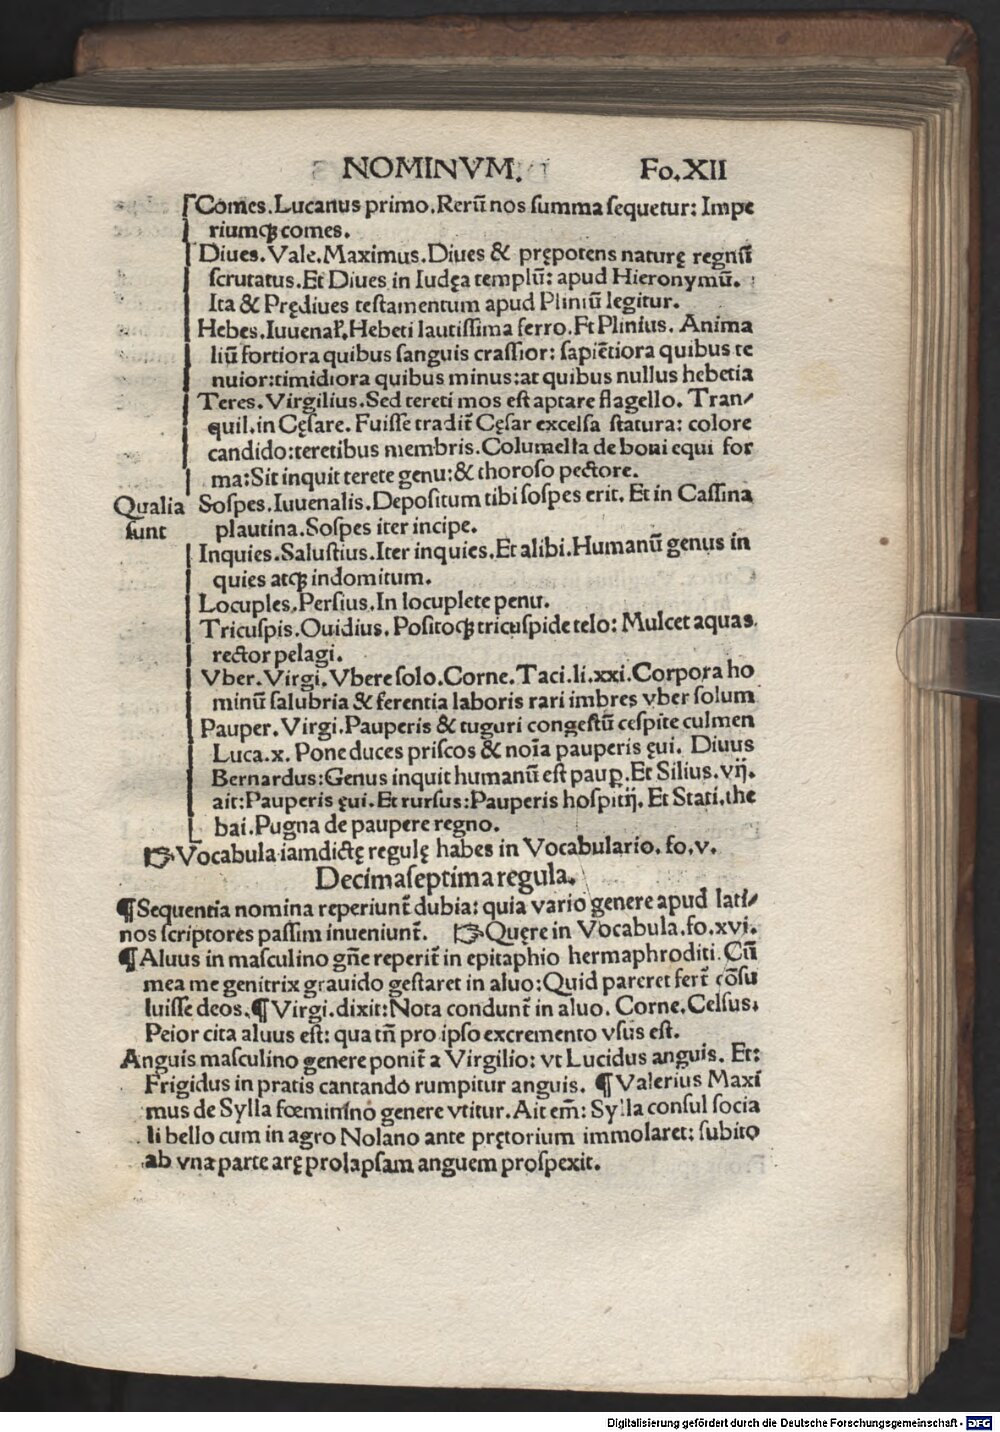 NOMINVM. Fo.XII
Comes.Lucanus primo.Rerū nos summa sequetur: Impe
riumqꝫ comes.
Diues.Vale.Maximus.Diues & prępotens naturę regnū
scrutatus.Et Diues in Iudęa templū: apud Hieronymū.
Ita & Prędiues testamentum apud Pliniū legitur.
Hebes.Iuuenal.Hebeti lautissima ferro.Et Plinius. Anima
liū fortiora quibus sanguis crassior: sapiētiora quibus te
nuior:timidiora quibus minus:at quibus nullus hebetia
Teres.Virgilius.Sed tereti mos est aptare flagello. Tran/
quil.in Cęsare. Fuisse tradit̃ Cęsar excelsa statura: colore
candido:teretibus membris.Columella de boni equi for
ma:Sit inquit terete genu:& thoroso pectore.
Qualia sunt
Sospes.Iuuenalis.Depositum tibi sospes erit. Et in Cassina
plautina.Sospes iter incipe.
Inquies.Salustius.Iter inquies.Et alibi.Humanū genus in
quies atqꝫ indomitum.
Locuples.Persius.In locuplete penu.
Tricuspis.Ouidius. Positoqꝫ tricuspide telo: Mulcet aquas
rector pelagi.
Vber.Virgi.Vbere solo.Corne.Taci.li.xxi.Corpora ho
minū salubria & ferentia laboris rari imbres vber solum
Pauper.Virgi.Pauperis & tuguri congestū cespite culmen
Luca.x. Pone duces priscos & noīa pauperis ęui. Diuus
Bernardus:Genus inquit humanū est paup̲.Et Silius.vij.
ait:Pauperis ęui.Et rursus:Pauperis hospitij. Et Stati.the
bai.Pugna de paupere regno.
☞Vocabula iamdictę regulę habes in Vocabulario. fo.v.
Decimaseptima regula.
¶Sequentia nomina reperiunt̃ dubia: quia vario genere apud lati/
nos scriptores passim inueniunt̃. ☞Quęre in Vocabula.fo.xvi.
¶Aluus in masculino gn̄e reperit̃ in epitaphio hermaphroditi.Cū
mea me genitrix grauido gestaret in aluo:Quid pareret fert̃ cōsu
luisse deos.¶Virgi.dixit:Nota condunt̃ in aluo. Corne.Celsus.
Peior cita aluus est: qua tn̄ pro ipso excremento vsus est.
Anguis masculino genere ponit̃ a Virgilio: vt Lucidus anguis. Et:
Frigidus in pratis cantando rumpitur anguis. ¶Valerius Maxi
mus de Sylla fœminīno genere vtitur.Ait em̄: Sylla consul socia
li bello cum in agro Nolano ante prętorium immolaret: subito
ab vna parte arę prolapsam anguem prospexit.
Digitalisierung gefördert durch die Deutsche Forschungsgemeinschaft - DFG